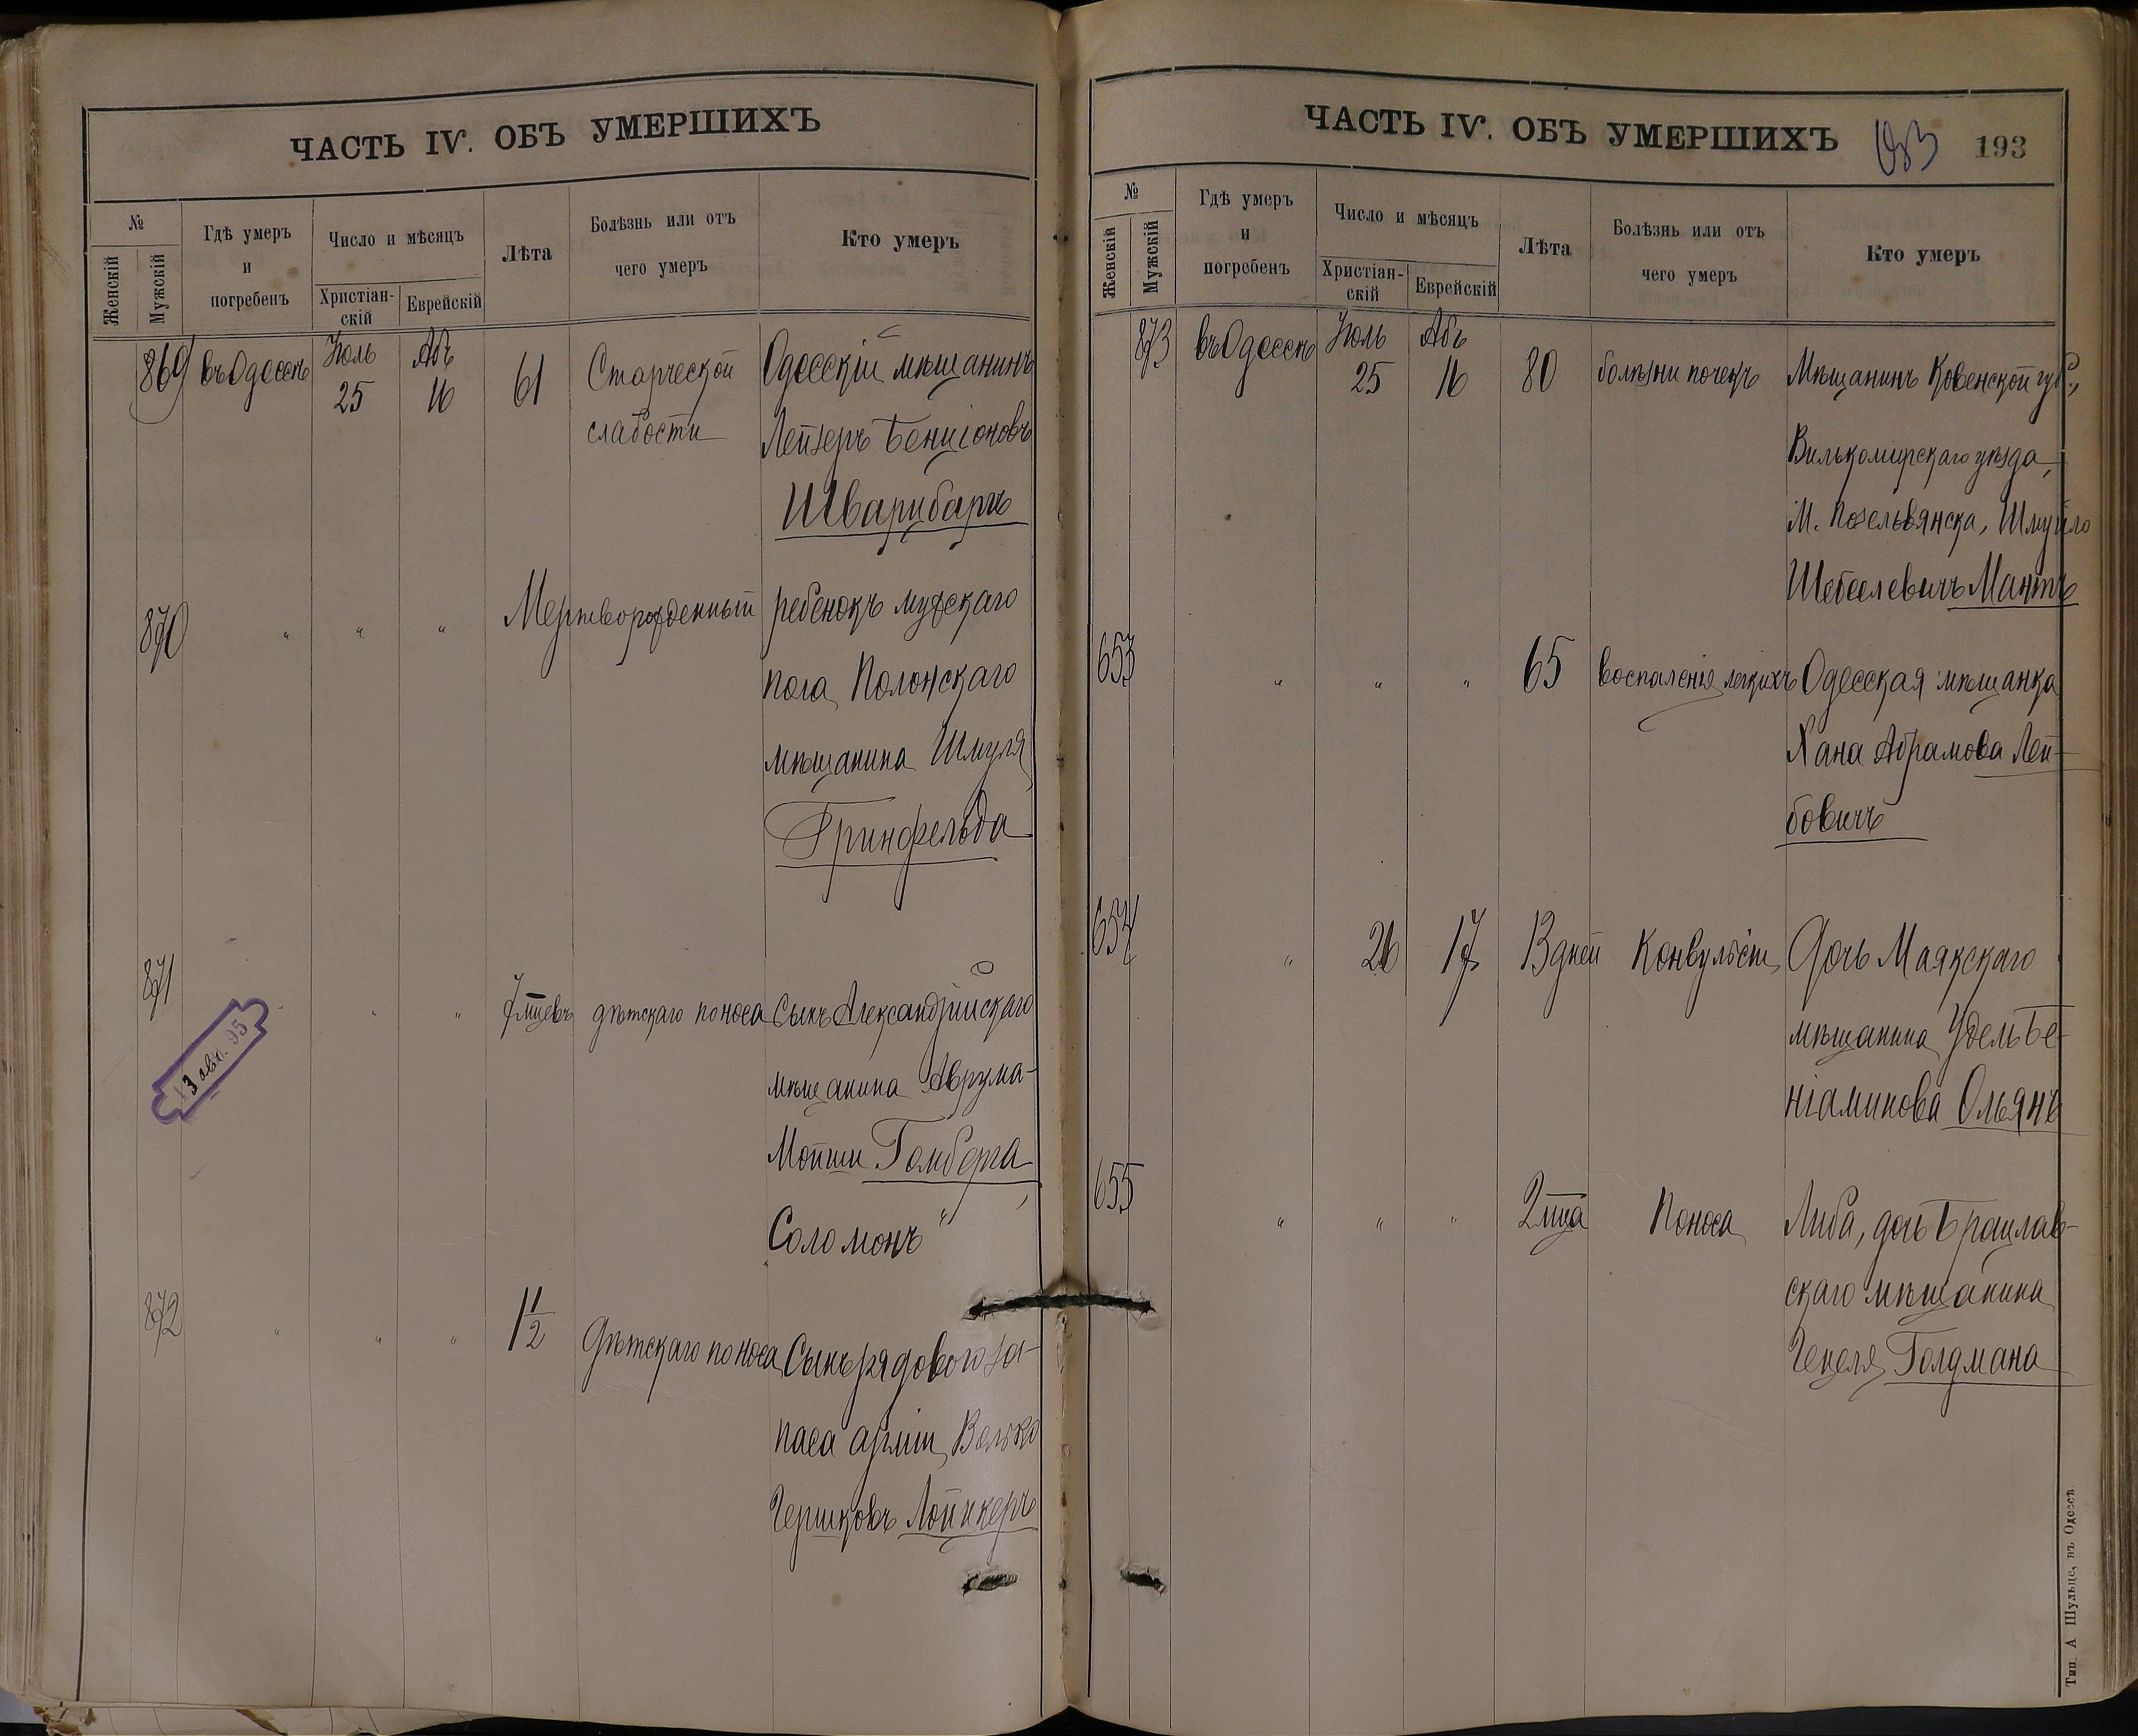 ЧАСТЬ IV. ОБЪ УМЕРШИХЪ
№
Женскій
Мужскій
Гдѣ умеръ
и
погребенъ
Число и мѣсяцъ
Христіан-
скій
Еврейскій
Лѣта
Болѣзнь или отъ
чего умеръ
Кто умеръ
869 въ Одессѣ Іюль 25 Абъ 16 61 Старческой Одесскій мѣщанинъ
слабости Лейзеръ Бенціоновъ
Шварцбергъ
870 " " " Мертворожденный ребенокъ мужскаго
пола Полонскаго
мѣщанина Шмуля
Гринфельда
871 " " " 7 мцевъ дѣтскаго поноса Сынъ Александрійскаго
мѣщанина Аврума-
Мойши Гомберга
"Соломонъ"
13 авг. 95
872 " " " 1 1/2 Дѣтскаго поноса Сынъ рядового за-
паса арміи Волько
Гершковъ Лойнкеръ
ЧАСТЬ IV. ОБЪ УМЕРШИХЪ 193 193
№
Женскій
Мужскій
Гдѣ умеръ
и
погребенъ
Число и мѣсяцъ
Христіан-
скій
Еврейскій
Лѣта
Болѣзнь или отъ
чего умеръ
Кто умеръ
873 въ Одессѣ Іюль 25 Абъ 16 80 болѣзни почекъ Мѣщанинъ Ковенской губ.,
Вилькомирскаго уѣзда,
М. Шмуйло
Шебселевичъ Мантъ
653 " " " 65 воспаленія легкихъ Одесская мѣщанка
Хана Абрамова Лей-
бовичъ
654 " 26 17 13 дней Конвульсіи Дочь Маякскаго
мѣщанина Удель Бе-
ніаминова Ольянъ
655 " " " 2 мца Поноса Либа, дочь Брацлав-
скаго мѣщанина
Гецеля Голдмана
Тип. А Шульце, въ Одессѣ